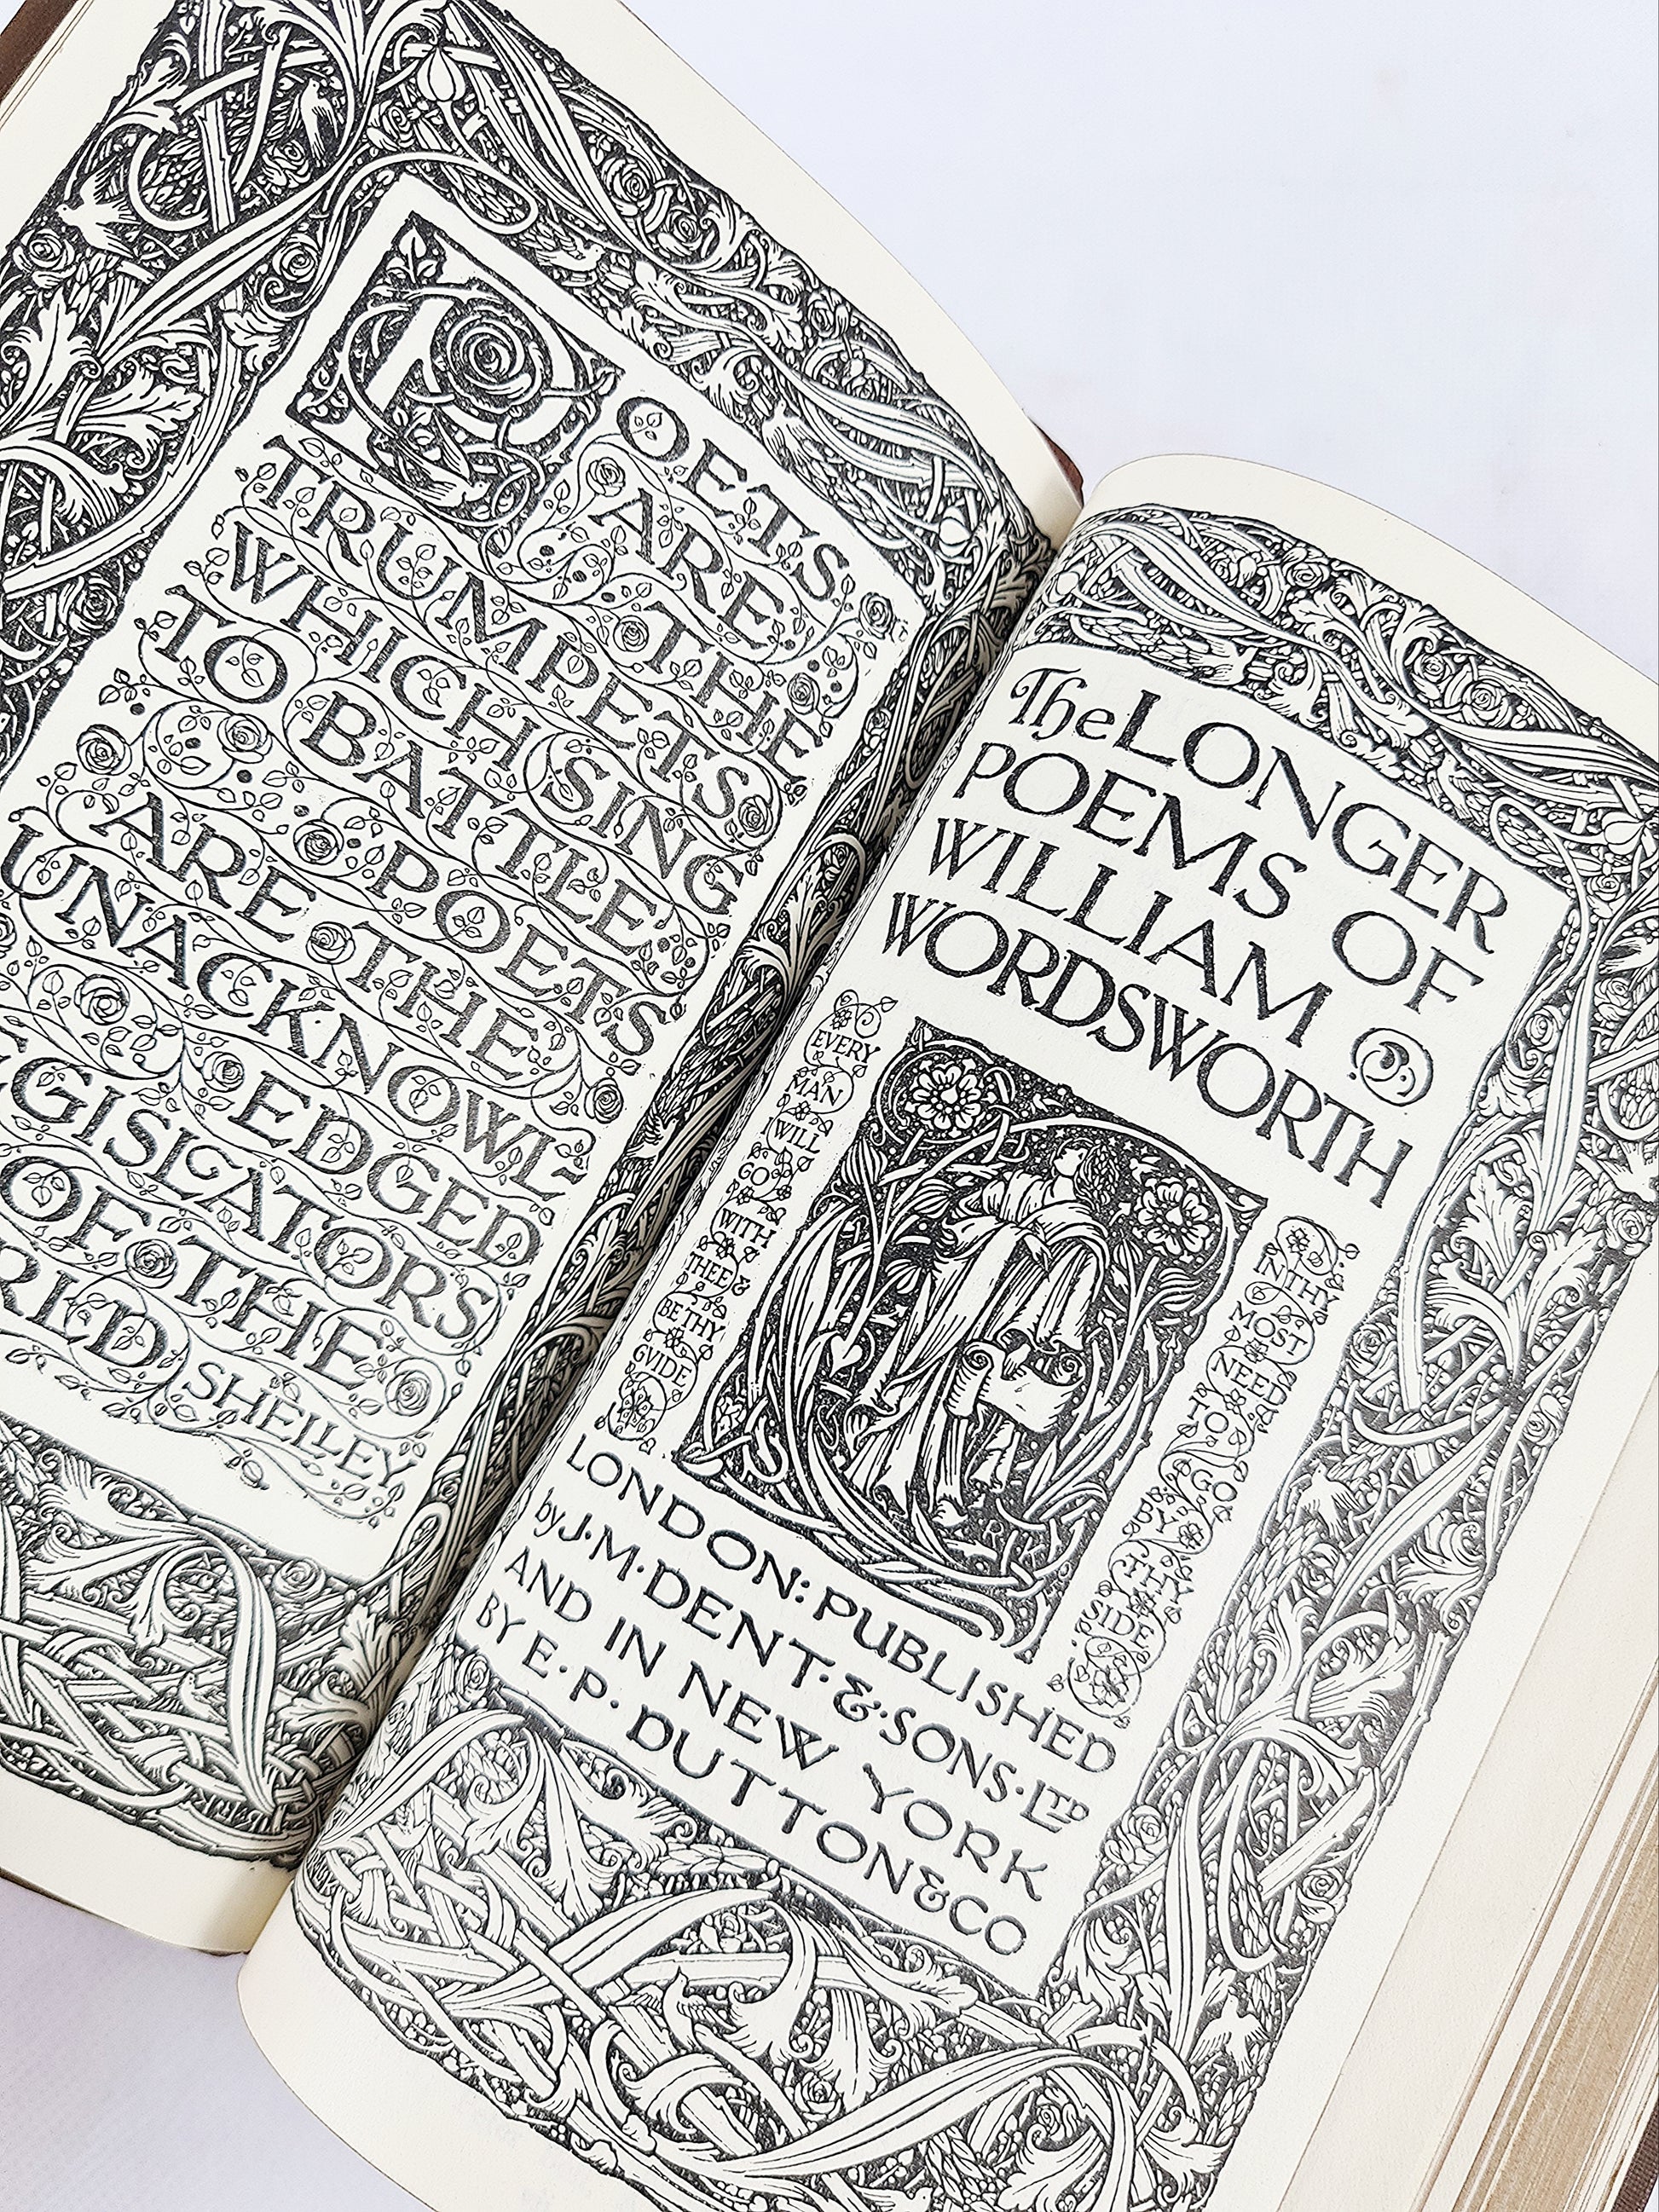 POETS
ARE THE
TRUMPETS
WHICH SING
TO BATTLE:
POETS
ARE THE
UNACKNOWL-
EDGED
GISLATORS
OF THE
RLD SHELLEY
The LONGER
POEMS OF
WILLIAM
WORDSWORTH
EVERY
MAN
I WILL
GO
WITH
THEE &
BE THY
GVIDE
IN THY
MOST
NEED
TO
GO
BY THY
SIDE
LONDON: PUBLISHED
by J·M·DENT·&·SONS·LTD
AND IN NEW YORK
BY E·P·DUTTON & CO